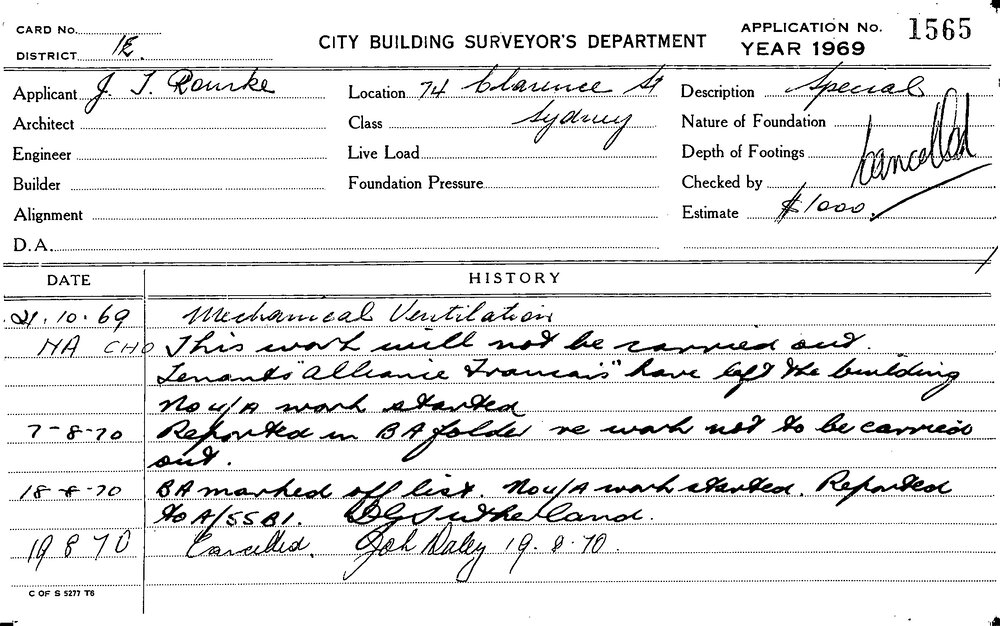 CARD No.
DISTRICT 1E.
CITY BUILDING SURVEYOR'S DEPARTMENT
APPLICATION No. 1565
YEAR 1969
Applicant J. T. Rourke
Location 74 Clarence St
Description Special
Architect
Class Sydney
Nature of Foundation
Engineer
Live Load
Depth of Footings
Cancelled
Builder
Foundation Pressure
Checked by
Alignment
Estimate $1000.
D.A.
DATE HISTORY
21.10.69 Mechanical Ventilation
NA CHO This work will not be carried out.
Tenants "Alliance Francais" have left the building
No u/A work started
7-8-70 Reported in BA folder re work not to be carried
out.
18-8-70 BA marked off list. No u/A work started. Reported
to A/SSBI. DGSutherland.
19 8 70 Cancelled. Daley 19.8.70.
C OF S 5277 T6